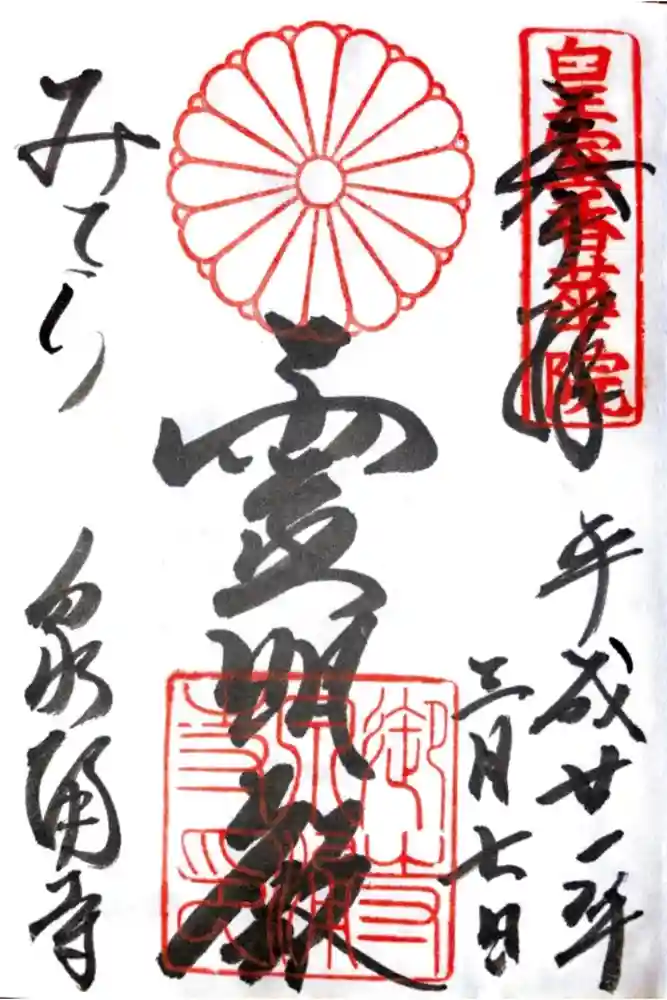 奉拝
皇室香華院
平成廿一年
三月七日
霊明殿
御寺泉涌寺印
みてら
泉涌寺